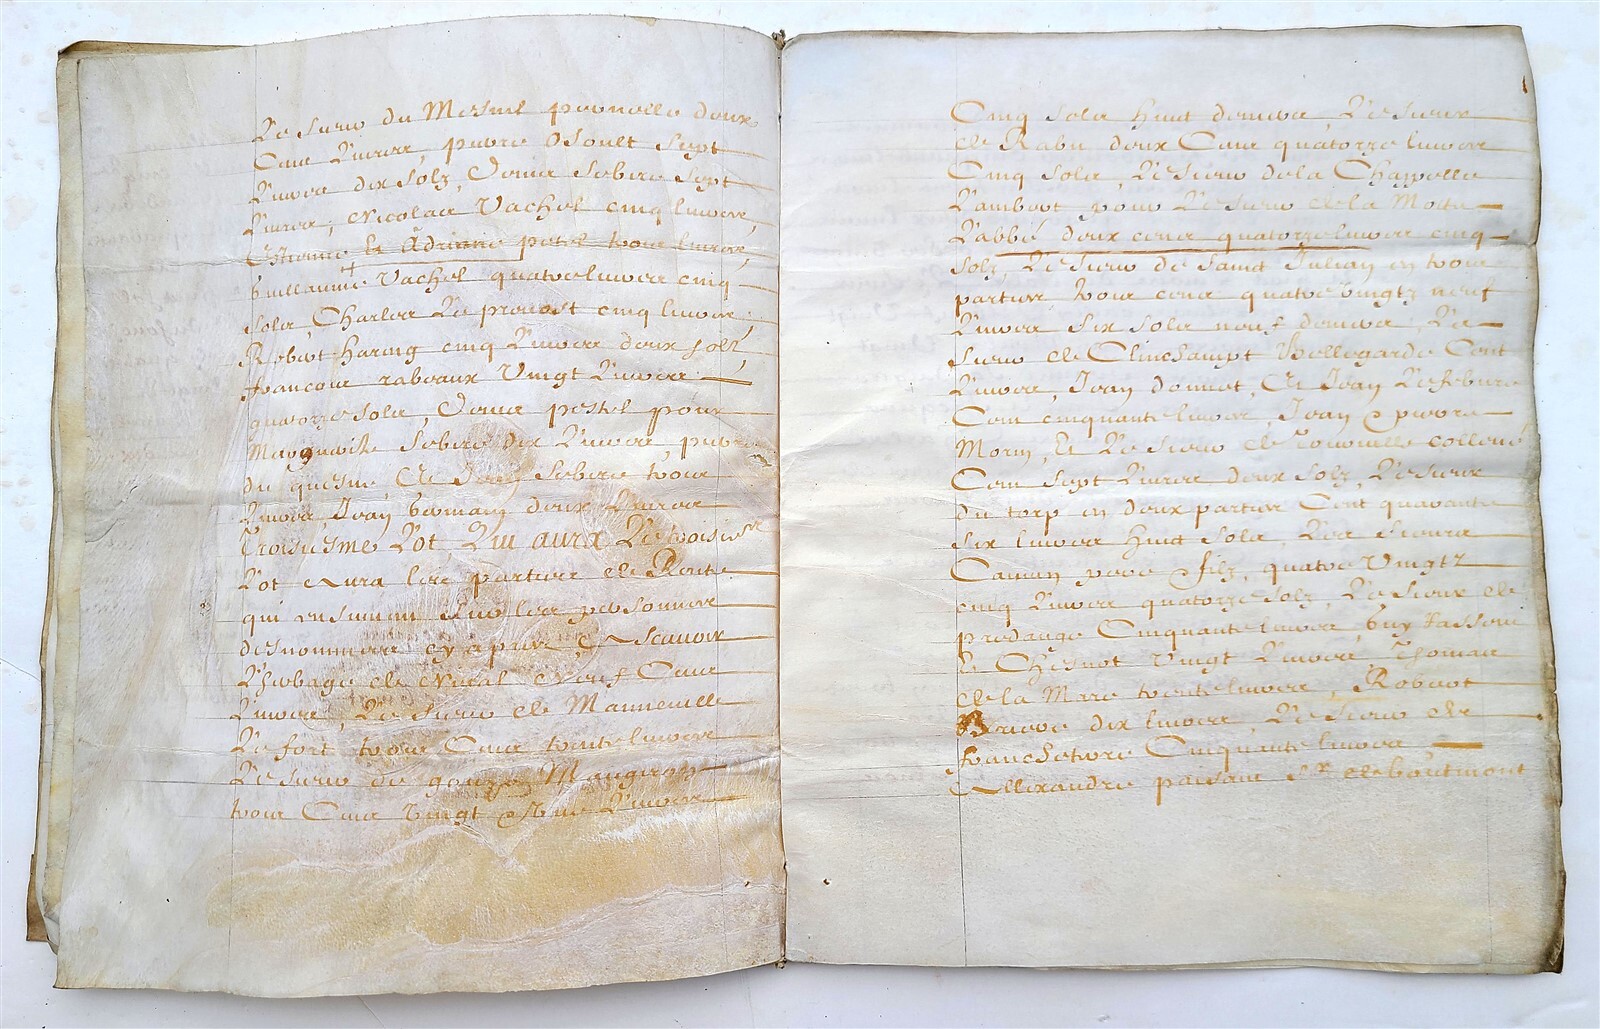 Le sieur du Mesnil peronelle deux
Cens Livres, pierre Osoult sept
Livres dix solz, Denis Sebire sept
Livres, Nicolas Vachel cinq livres,
Estienne & Adriane petel trois livres,
Guillaume Vachel quatre livres cinq
solz, Charles Le prevost cinq livres,
Robert haring cinq Livres deux solz,
francois rabeaux Vingt Livres
quatorze solz, Denis pestel pour
Marguerite Sebire dix Livres, pierre
du quesne & Sebire trois
Livres, Jean deux Livres
Troisiesme Lot Qui aura Le troisie.
Lot Aura les parties de Rente
qui ensuivent sur les personnes
desnommees cy apres, A Scavoir
L'herbage de Neuf Cens
Livres, Le sieur de Manneville
Le fort trois Cens trente livres
Le sieur de gonze Mangeren
trois Cens Vingt & une Livres
Cinq solz huit deniers, Le sieur
de Rabu deux Cens quatorze livres
Cinq solz, Le sieur de la Chappelle
Lambert pour Le sieur de la Motte
L'abbé deux cens quatorze livres cinq
solz, Le sieur de Saint Julian en trois
parties trois cens quatre vingtz neuf
Livres six solz neuf deniers, Le
sieur de Clinchampt Bellegarde Cent
Livres, Jean donnet, & Jean Lefebure
Cent cinquante livres, Jean & pierre
Morin, & Le sieur de
Cent sept Livres deux solz, Le sieur
du torp en deux parties Cent quarante
six livres huit solz, Les sieurs
pere & filz, quatre Vingtz
cinq Livres quatorze solz, Le sieur de
predauge Cinquante livres, Guy
le Chesnot Vingt Livres, Thomas
de la Mare trente livres, Robert
Briere dix livres, Le sieur de
francheterre Cinquante livres
Allexandre paisant Sr. de boutmont